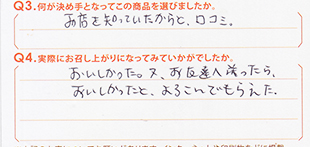 Q3.何が決め手となってこの商品を選びましたか。
お店を知っていたからと、口コミ。
Q4.実際にお召し上がりになってみていかがでしたか。
おいしかった。又、お友達へ送ったら、
おいしかったと、よろこんでもらえた。